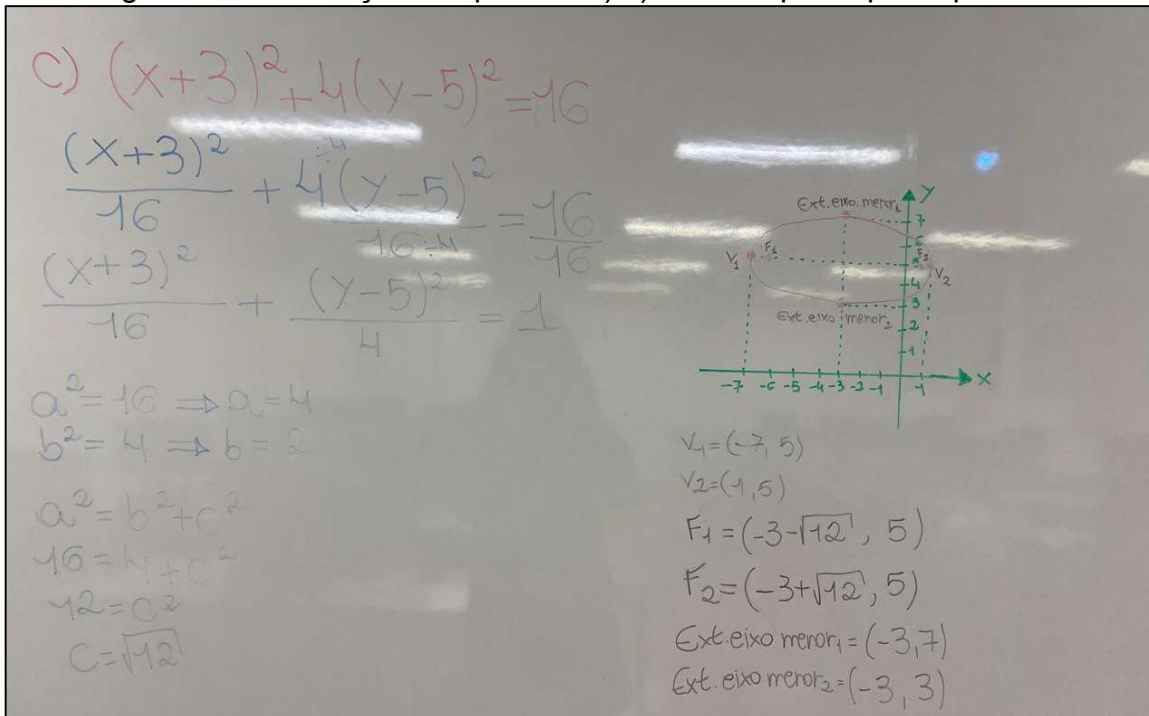 C) (x+3)² + 4(y-5)² = 16
(x+3)²/16 + 4:4(y-5)²/16:4 = 16/16
(x+3)²/16 + (y-5)²/4 = 1
a² = 16 ⇒ a = 4
b² = 4 ⇒ b = 2
a² = b² + c²
16 = 4 + c²
12 = c²
C = √12
y
Ext. eixo menor₁
7
6
V₁ F₁ 5 F₂
4 V₂
3
Ext. eixo menor₂
2
1
-7 -6 -5 -4 -3 -2 -1 1 x
V₁ = (-7, 5)
V₂ = (1, 5)
F₁ = (-3-√12, 5)
F₂ = (-3+√12, 5)
Ext. eixo menor₁ = (-3, 7)
Ext. eixo menor₂ = (-3, 3)